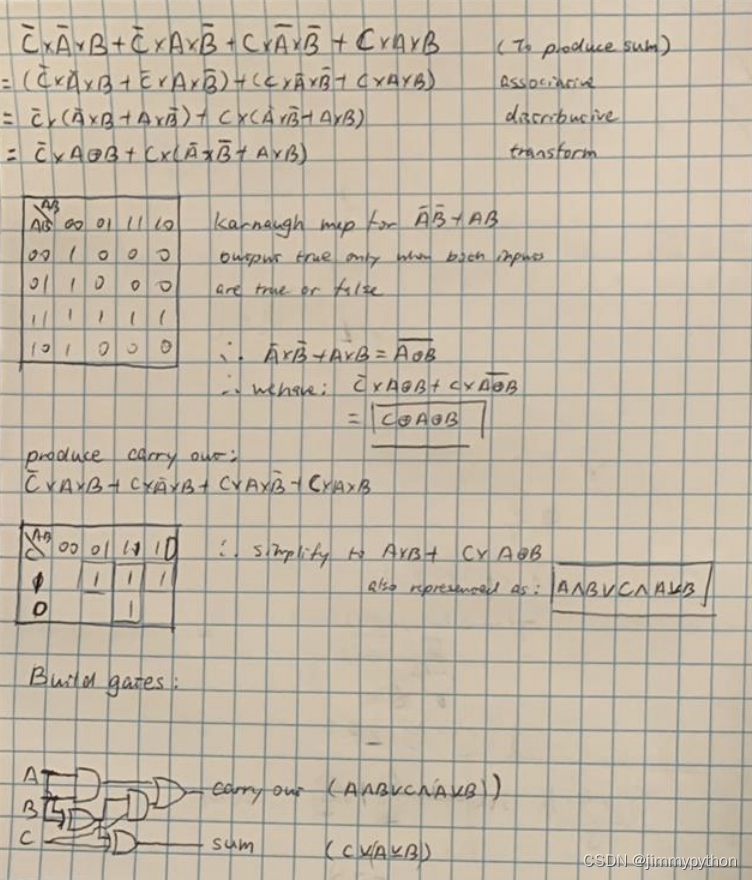 C̄×Ā×B + C̄×A×B̄ + C×Ā×B̄ + C×A×B (To produce sum)
= (C̄×Ā×B + C̄×A×B̄) + (C×Ā×B̄ + C×A×B) associative
= C̄×(Ā×B + A×B̄) + C×(Ā×B̄ + A×B) distributive
= C̄×A⊕B + C×(Ā×B̄ + A×B) transform
AB
AB 00 01 11 10
00 1 0 0 0
01 1 0 0 0
11 1 1 1 1
10 1 0 0 0
Karnaugh map for ĀB̄ + AB
outputs true only when both inputs
are true or false
∴ Ā×B̄ + A×B = A̅⊕̅B̅
∴ we have: C̄×A⊕B + C×A̅⊕̅B̅
= C⊕A⊕B
produce carry out:
C̄×A×B + C×Ā×B + C×A×B̄ + C×A×B
AB
C 00 01 11 10
1 1 1 1
0 1
∴ simplify to A×B + C×A⊕B
also represented as: A∧B∨C∧A⊻B
Build gates:
A
B
C
carry out (A∧B∨C∧A⊻B))
sum (C⊻(A⊻B)
CSDN @jimmypython